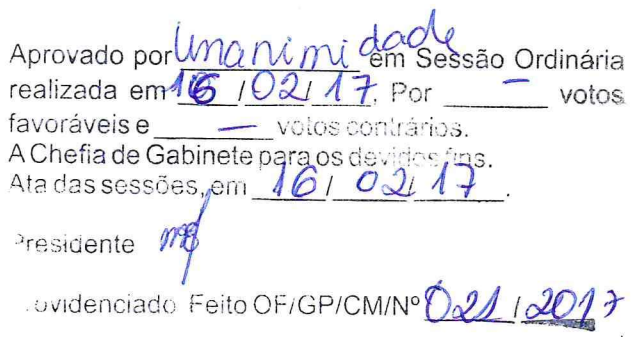 Aprovado por Unanimidade em Sessão Ordinária
realizada em 16 / 02 / 17. Por — votos
favoráveis e — votos contrários.
A Chefia de Gabinete para os devidos fins.
Ata das sessões, em 16 / 02 / 17.
Presidente
Providenciado Feito OF/GP/CM/Nº 021 / 2017